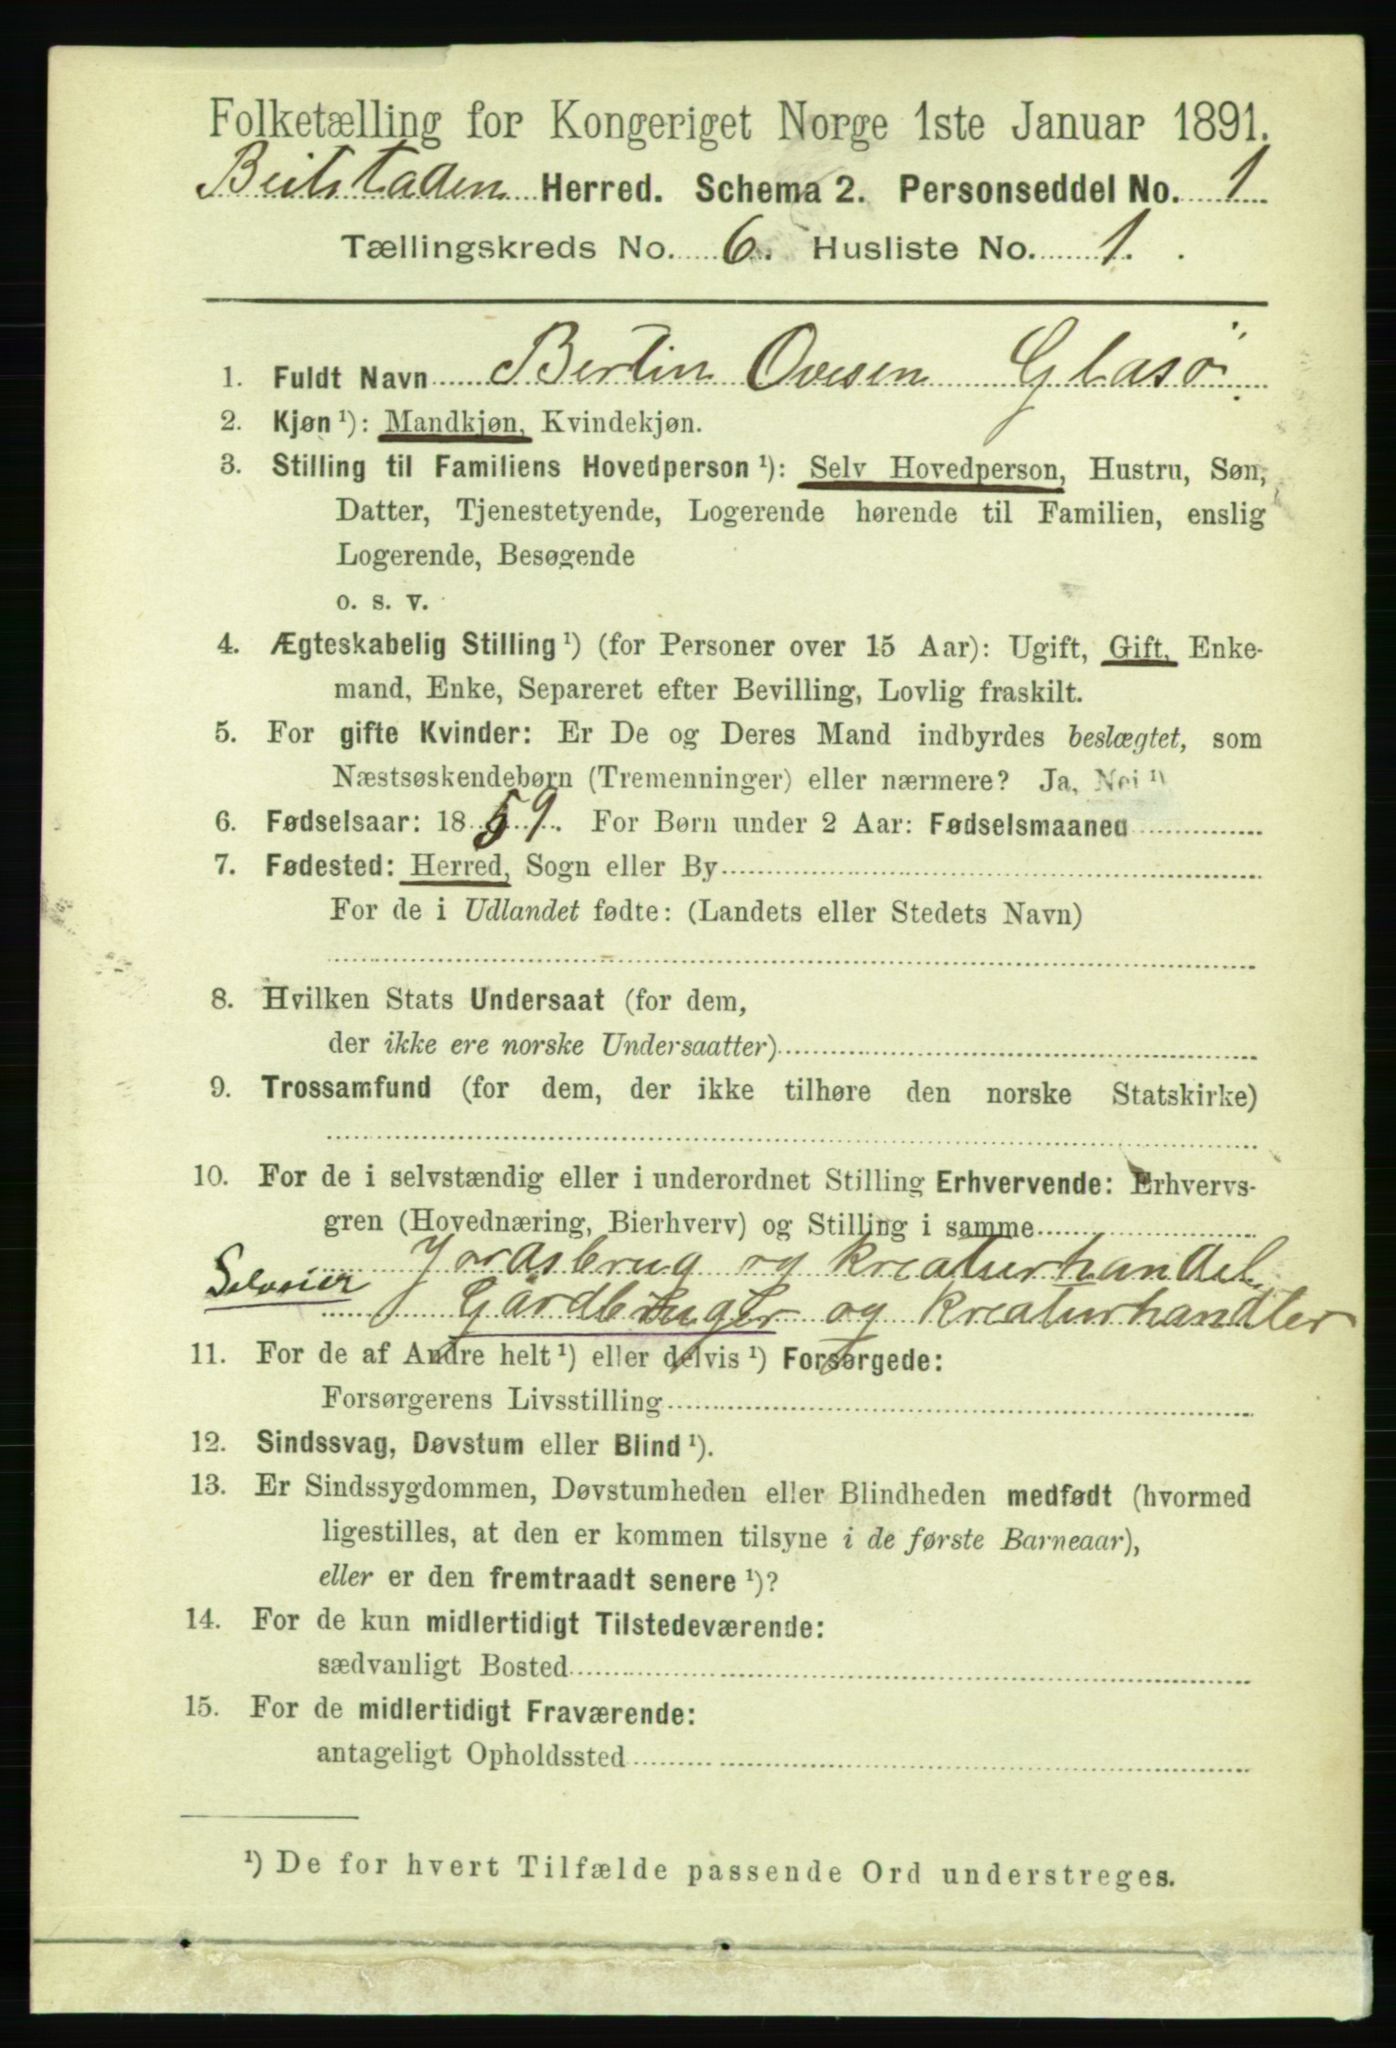 Folketælling for Kongeriget Norge 1ste Januar 1891.
Beitstaden Herred. Schema 2. Personseddel No. 1
Tællingskreds No. 6. Husliste No. 1.
1. Fuldt Navn Bertin Ovesen Glasø
2. Kjøn ¹): Mandkjøn, Kvindekjøn.
3. Stilling til Familiens Hovedperson ¹): Selv Hovedperson, Hustru, Søn,
Datter, Tjenestetyende, Logerende hørende til Familien, enslig
Logerende, Besøgende
o. s. v.
4. Ægteskabelig Stilling ¹) (for Personer over 15 Aar): Ugift, Gift, Enke-
mand, Enke, Separeret efter Bevilling, Lovlig fraskilt.
5. For gifte Kvinder: Er De og Deres Mand indbyrdes beslægtet, som
Næstsøskendebørn (Tremenninger) eller nærmere? Ja, Nei ¹)
6. Fødselsaar: 1859. For Børn under 2 Aar: Fødselsmaaned
7. Fødested: Herred, Sogn eller By
For de i Udlandet fødte: (Landets eller Stedets Navn)
8. Hvilken Stats Undersaat (for dem,
der ikke ere norske Undersaatter)
9. Trossamfund (for dem, der ikke tilhøre den norske Statskirke)
10. For de i selvstændig eller i underordnet Stilling Erhvervende: Erhvervs-
gren (Hovednæring, Bierhverv) og Stilling i samme
Jordsbrug og Kreaturhandel
Selveier Gårdbruger og Kreaturhandler
11. For de af Andre helt ¹) eller delvis ¹) Forsørgede:
Forsørgerens Livsstilling
12. Sindssvag, Døvstum eller Blind ¹).
13. Er Sindssygdommen, Døvstumheden eller Blindheden medfødt (hvormed
ligestilles, at den er kommen tilsyne i de første Barneaar),
eller er den fremtraadt senere ¹)?
14. For de kun midlertidigt Tilstedeværende:
sædvanligt Bosted
15. For de midlertidigt Fraværende:
antageligt Opholdssted
¹) De for hvert Tilfælde passende Ord understreges.